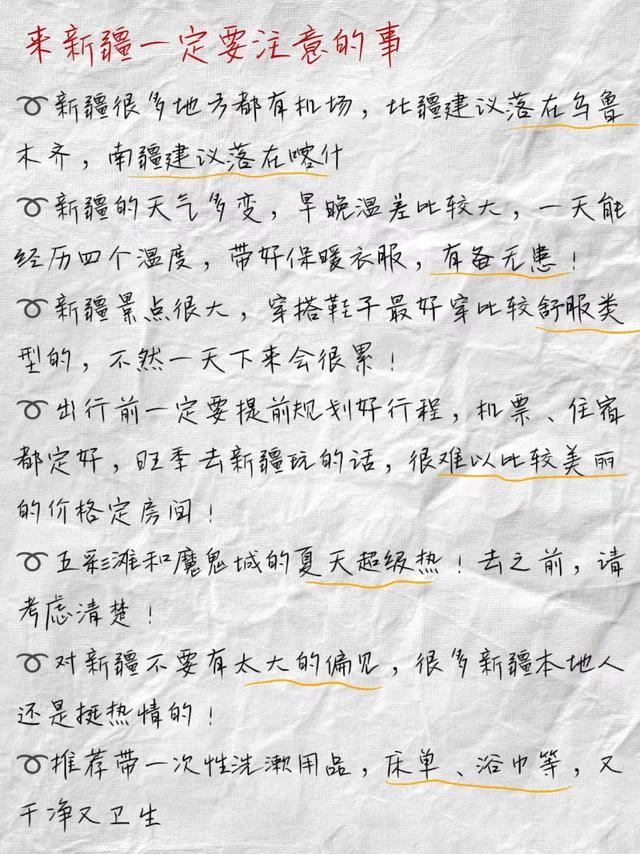 来新疆一定要注意的事
新疆很多地方都有机场，北疆建议落在乌鲁
木齐，南疆建议落在喀什
新疆的天气多变，早晚温差比较大，一天能
经历四个温度，带好保暖衣服，有备无患！
新疆景点很大，穿搭鞋子最好穿比较舒服类
型的，不然一天下来会很累！
出行前一定要提前规划好行程，机票、住宿
都定好，旺季去新疆玩的话，很难以比较美丽
的价格定房间！
五彩滩和魔鬼城的夏天超级热！去之前，请
考虑清楚！
对新疆不要有太大的偏见，很多新疆本地人
还是挺热情的！
推荐带一次性洗漱用品，床单、浴巾等，又
干净又卫生